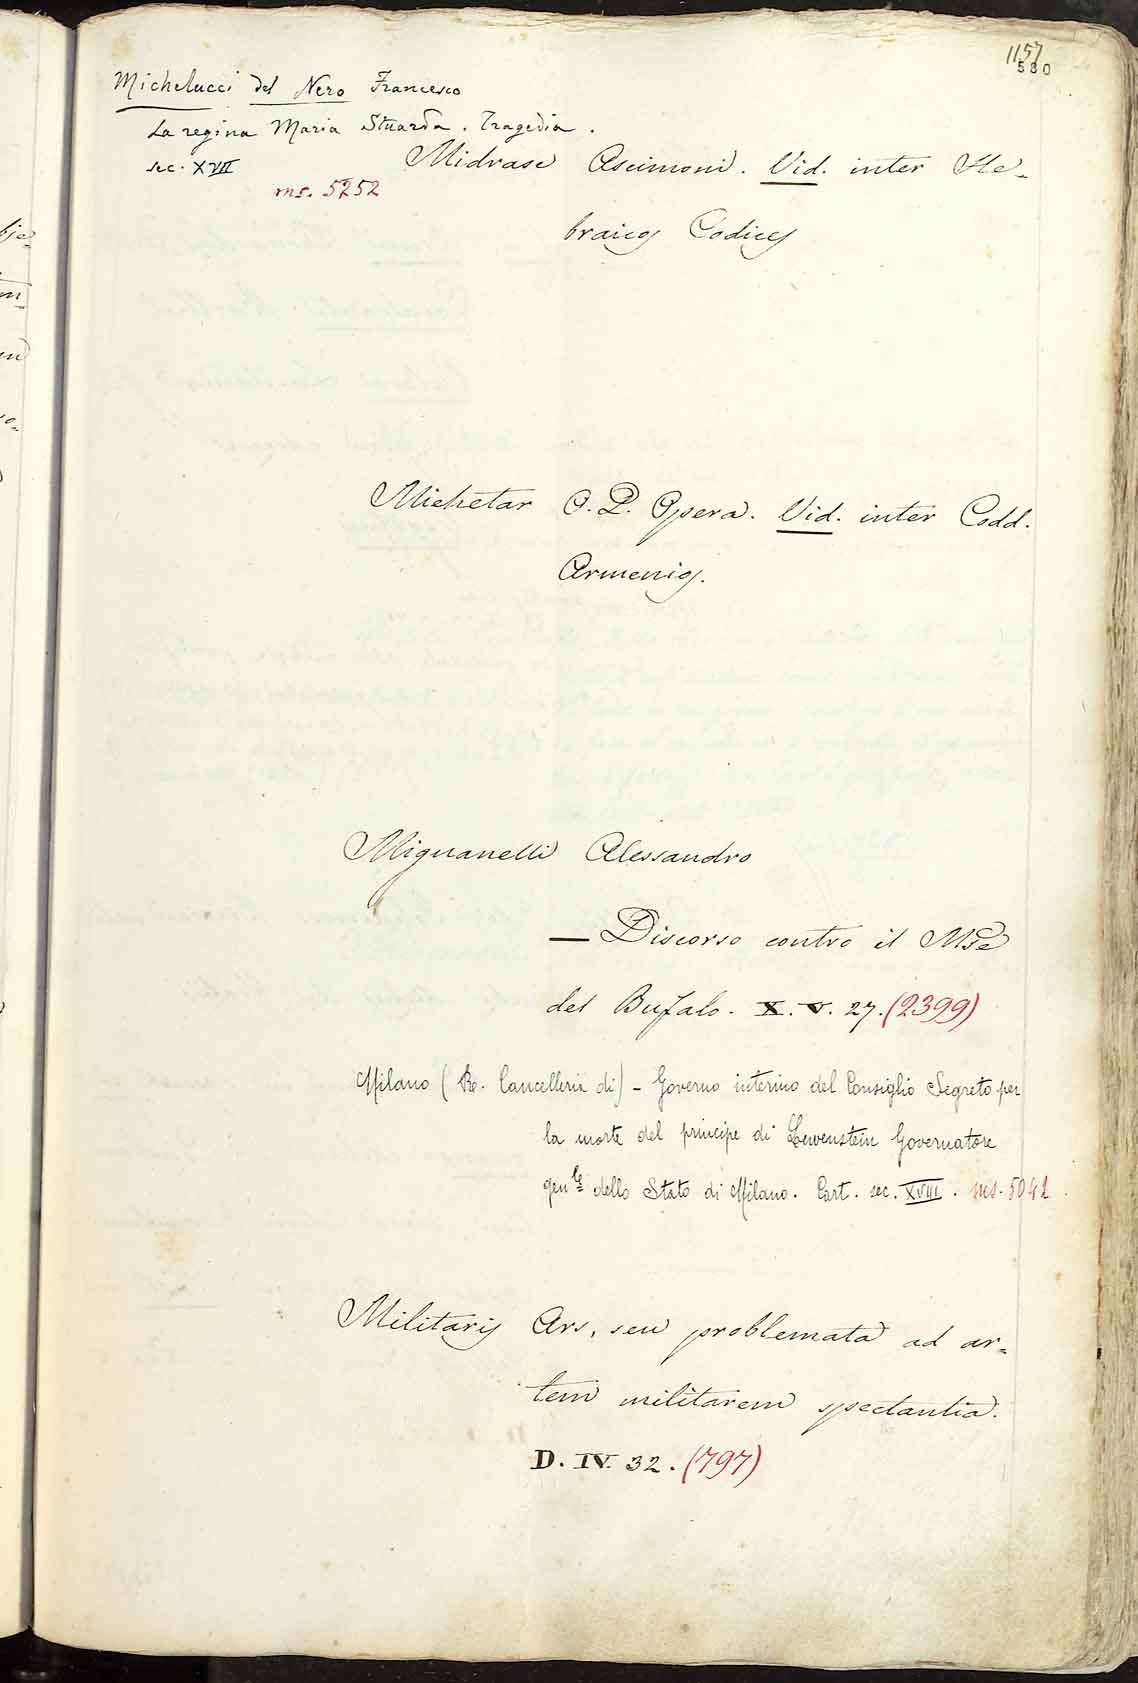 1157
580
Michelucci del Nero Francesco
La regina Maria Stuarda. Tragedia.
sec. XVII
ms. 5252
Midrasc Ascimoni. Vid. inter He-
braicos Codices
Michetar O. P. Opera. Vid. inter Codd.
Armenios.
Mignanelli Alessandro
— Discorso contro il Mse
del Bufalo. X. V. 27. (2399)
Milano (R. Cancelleria di) - Governo interino del Consiglio Segreto per
la morte del principe di Lewenstein Governatore
gen.le dello Stato di Milano. Cart. sec. XVIII. ms. 5042
Militaris Ars, seu problemata ad ar-
tem militarem spectantia.
D. IV. 32. (797)